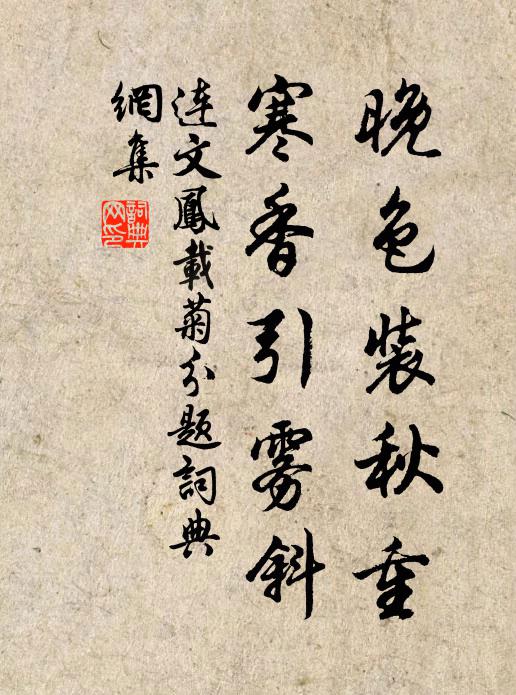 晚色裝秋重
寒香引霧斜
連文鳳載菊分題詞典
網集
詞典
网印